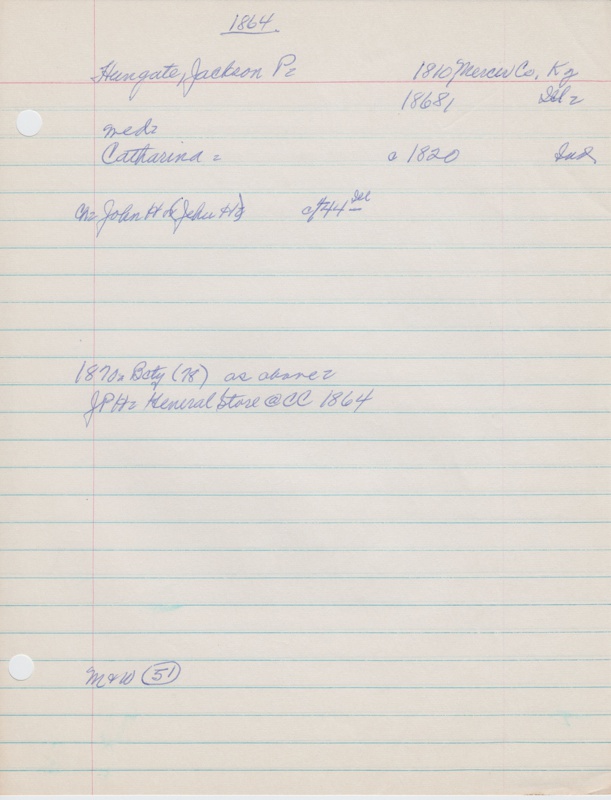 1864.
Hungate, Jackson P= 1810 Mercer Co, Ky
1868, Ill=
med=
Catharina = c 1820 Ind,
Ch= John H or (Jehu H) c/44 Ill
1870= Bcty (78) as above=
JPH= General Store @ CC 1864
M&W (51)